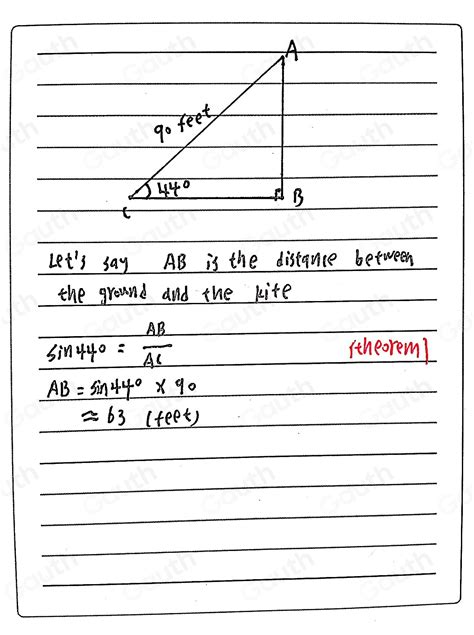 A
90 feet
44°
C
B
Let's say AB is the distance between
the ground and the kite
sin44° = AB/AC
(theorem)
AB = sin44° x 90
≈ 63 (feet)